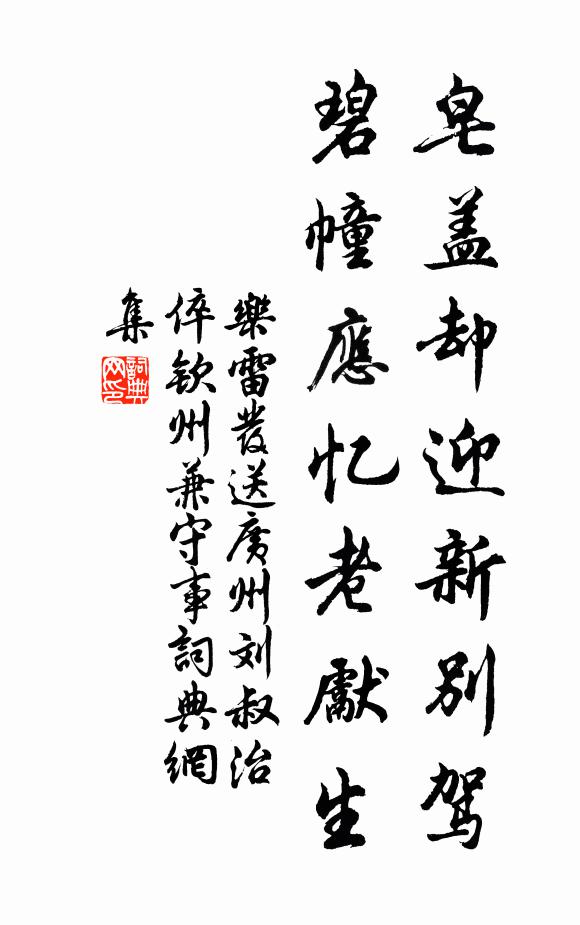 皂盖却迎新别駕
碧幢應忆老獻生
樂雷發送廣州刘叔治
倅欽州兼守事詞典網
集
詞典网印